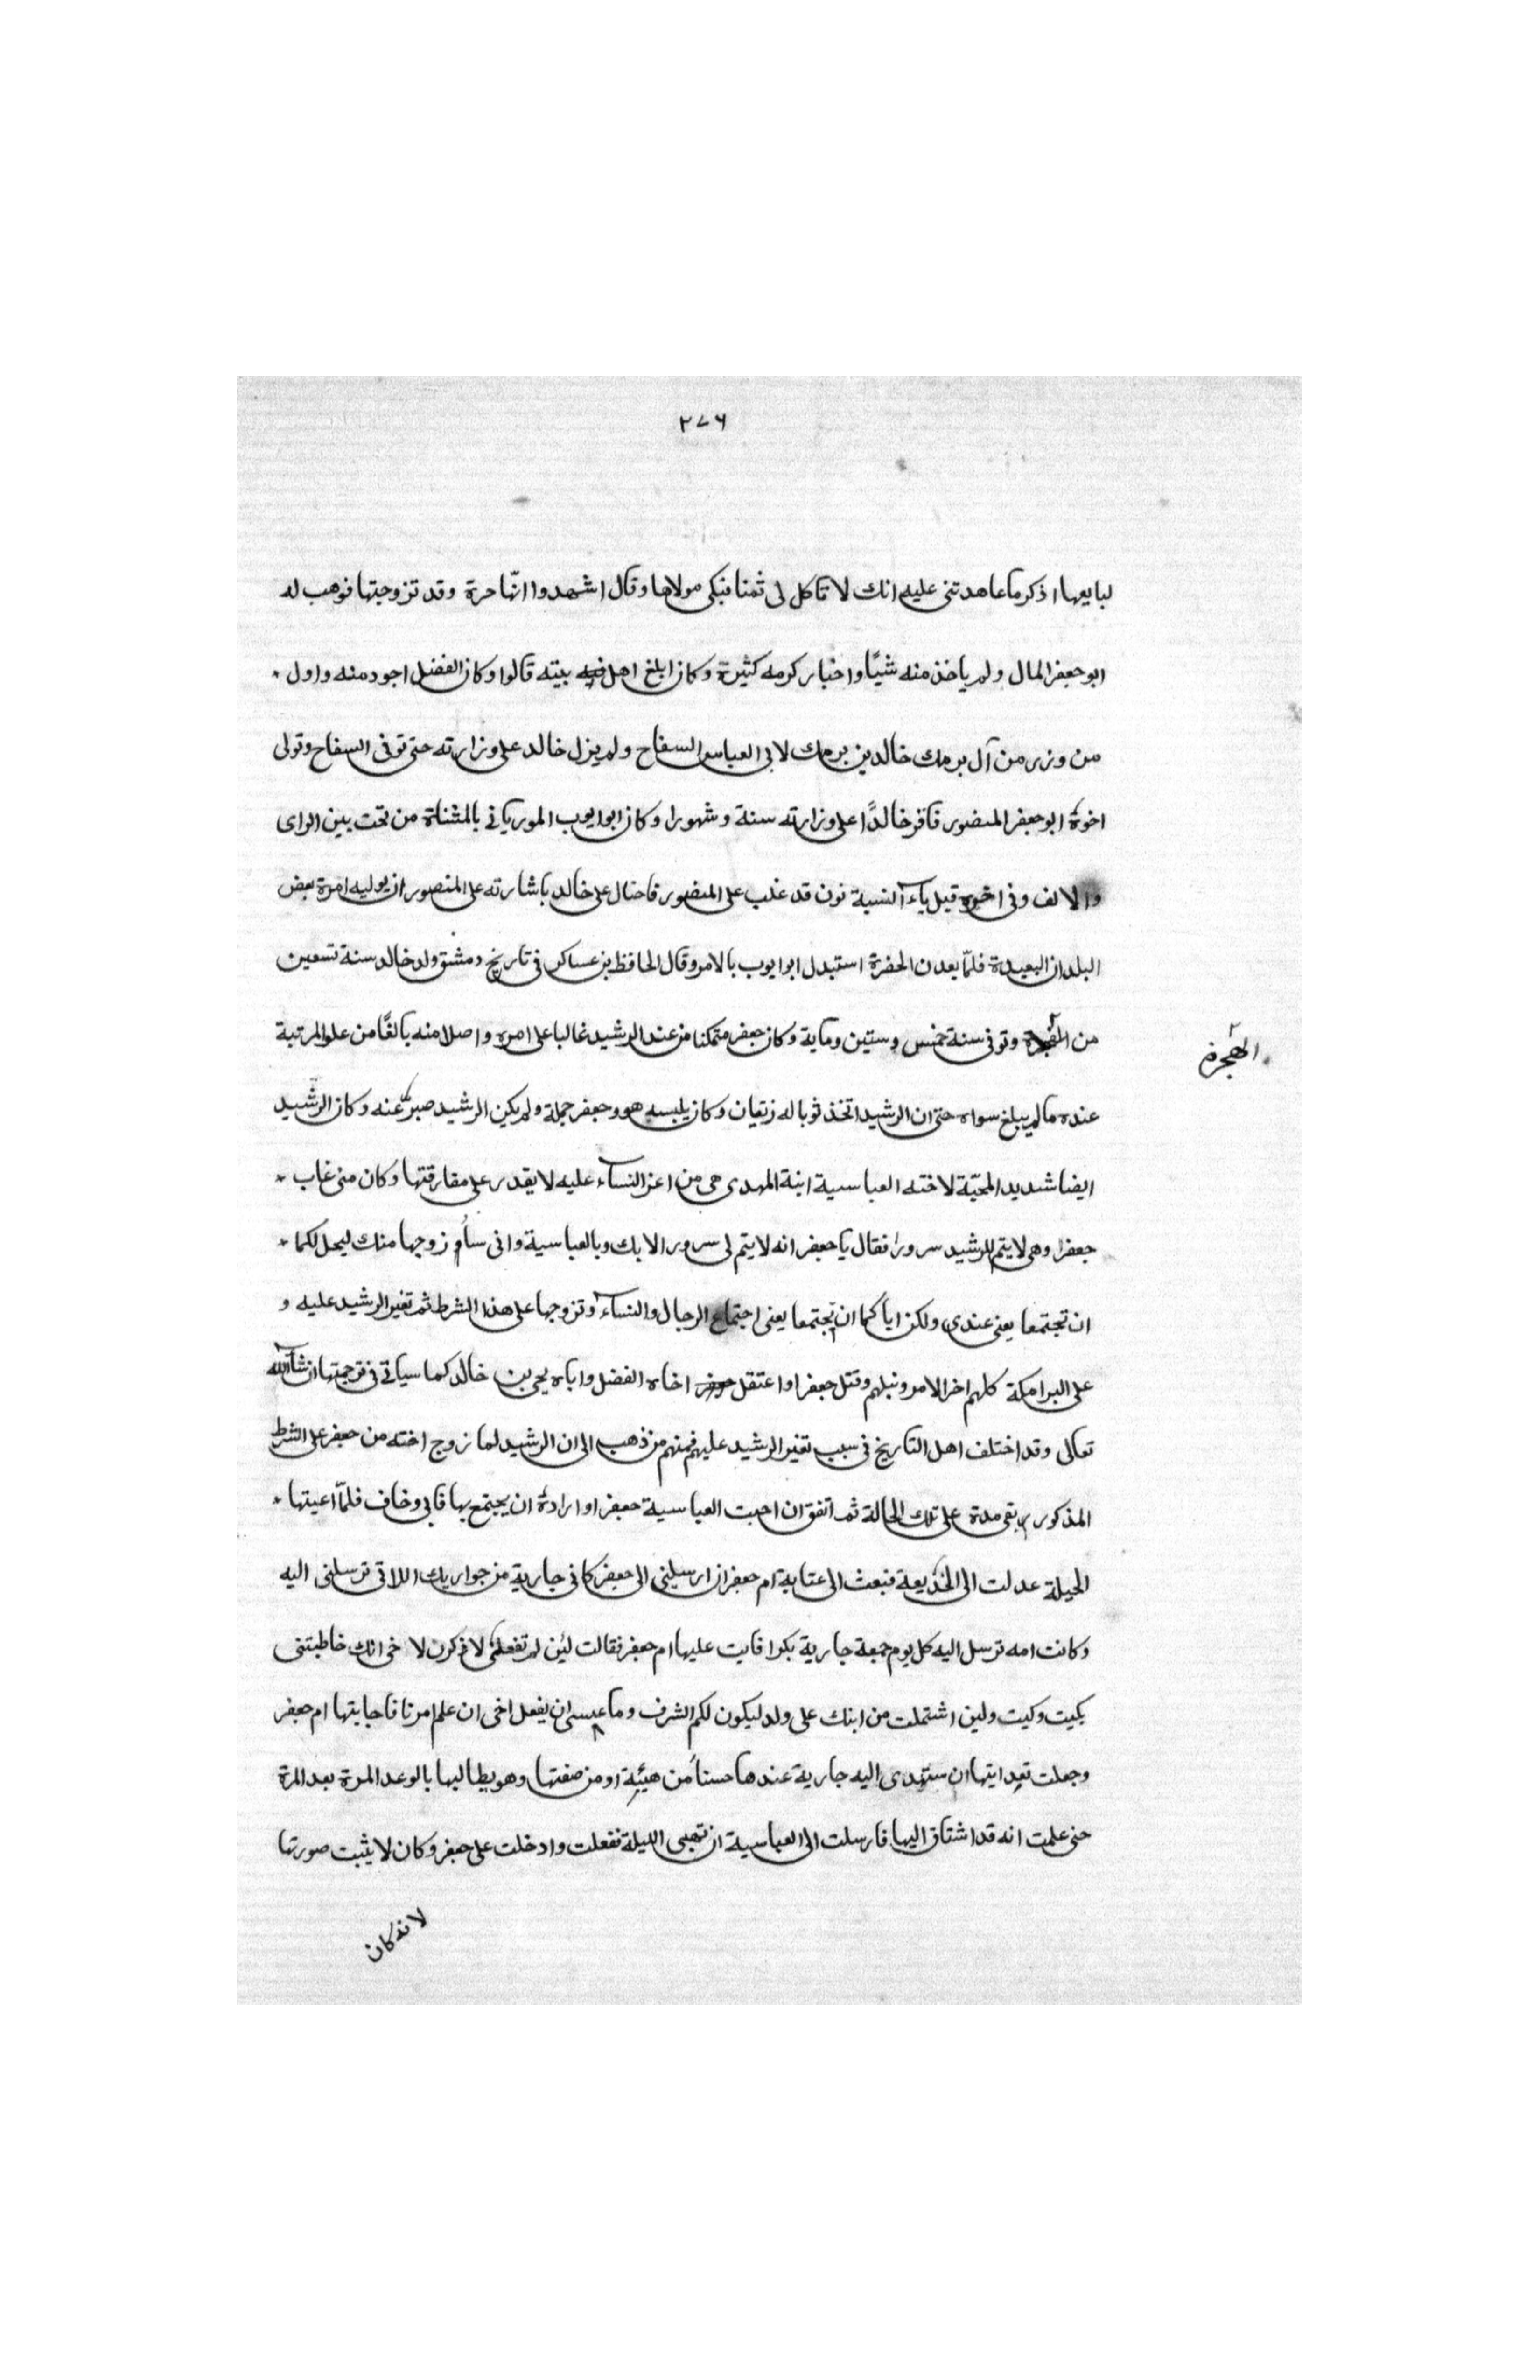 ٢٧٦
لبايعها اذكر ما عاهدتني عليه انك لا تاكل لي ثمنا فبكى مولاها وقال اشهدوا انّها حرة وقد تزوجتها فوهب له
ابو جعفر المال ولم ياخذ منه شيًا واخبار كرمه كثيرة وكان ابلغ اهل بيته قالوا وكان الفضل اجود منه واول
من وزر من آل برمك خالد بن برمك لابي العباس السفاح ولم يزل خالد على وزارته حتى توفى السفاح وتولى
اخوه ابو جعفر المنصور فاقر خالدًا على وزارته سنة وشهورا وكان ابو ايوب المورياني بالمثناة من تحت بين الراى
والالف وفى اخره قبل ياء النسبة نون قد غلب على المنصور فاحتال على خالد باشارته على المنصور ان يوليه امرة بعض
البلدان البعيدة فلمّا بعد ن الحضرة استبدل ابو ايوب بالامر وقال الحافظ بن عساكر في تاريخ دمشق ولد خالد سنة تسعين
من الهجرة وتوفى سنة خمس وستين وماية وكان جعفر متمكنا من عند الرشيد غالبا على امره واصلا منه بالغًا من علو المرتبة
الهجرة
عنده ما لم يبلغ سواه حتى ان الرشيد اتخذ ثوبا له زيقان وكان يلبسه هو وجعفر جملة ولم يكن الرشيد صبر عنه وكان الرشيد
ايضا شديد المحبّة لاخته العباسية ابنة المهدى هى من اعز النساء عليه لا يقدر على مفارقتها وكان متى غاب
جعفرا وهى لا يتم للرشيد سرورا فقال يا جعفر انه لا يتم لى سرور الا بك وبالعباسية وانى سأزوجها منك ليحل لكما
ان تجتمعا يعنى عندى ولكن اياكما ان تجتمعا يعنى اجتماع الرجال والنساء وتزوجها على هذا الشرط ثم تغير الرشيد عليه و
على البرامكة كلهم اخر الامر ونبلهم وقتل جعفرا واعتقل اخاه الفضل واباه يحيى بن خالد كما سياتى في ترجمتها ان شاء الله
تعالى وقد اختلف اهل التاريخ في سبب تغير الرشيد عليهم فمنهم من ذهب الى ان الرشيد لما زوج اخته من جعفر على الشرط
المذكور بقى مدة على تلك الحالة ثم اتفق ان احبت العباسية جعفرا وارادة ان يجتمع بها فابى وخاف فلمّا اعيتها
الحيلة عدلت الى الخديعة فبعث الى عتابة ام جعفر ان ارسلينى الى جعفر كانى جارية من جواريك اللاتى ترسلنى اليه
وكانت امه ترسل اليه كل يوم جمعة جارية بكرا فابت عليها ام جعفر فقالت لئن لم تفعلى لاذكرن لاخى انك خاطبتنى
بكيت وكيت ولين اشتملت من ابنك على ولد ليكون لكم الشرف وما عسى ان يفعل اخى ان علم امرنا فاجابتها ام جعفر
وجعلت تعد ابنها ان ستهدى اليه جارية عندها حسنا من هيئة او من صفتها وهو يطالبها بالوعد المرة بعد المرة
حتى علمت انه قد اشتاق اليها فارسلت الى العباسية ان تهيى الليلة ففعلت وادخلت على جعفر وكان لا يثبت صورتها
لانه كان